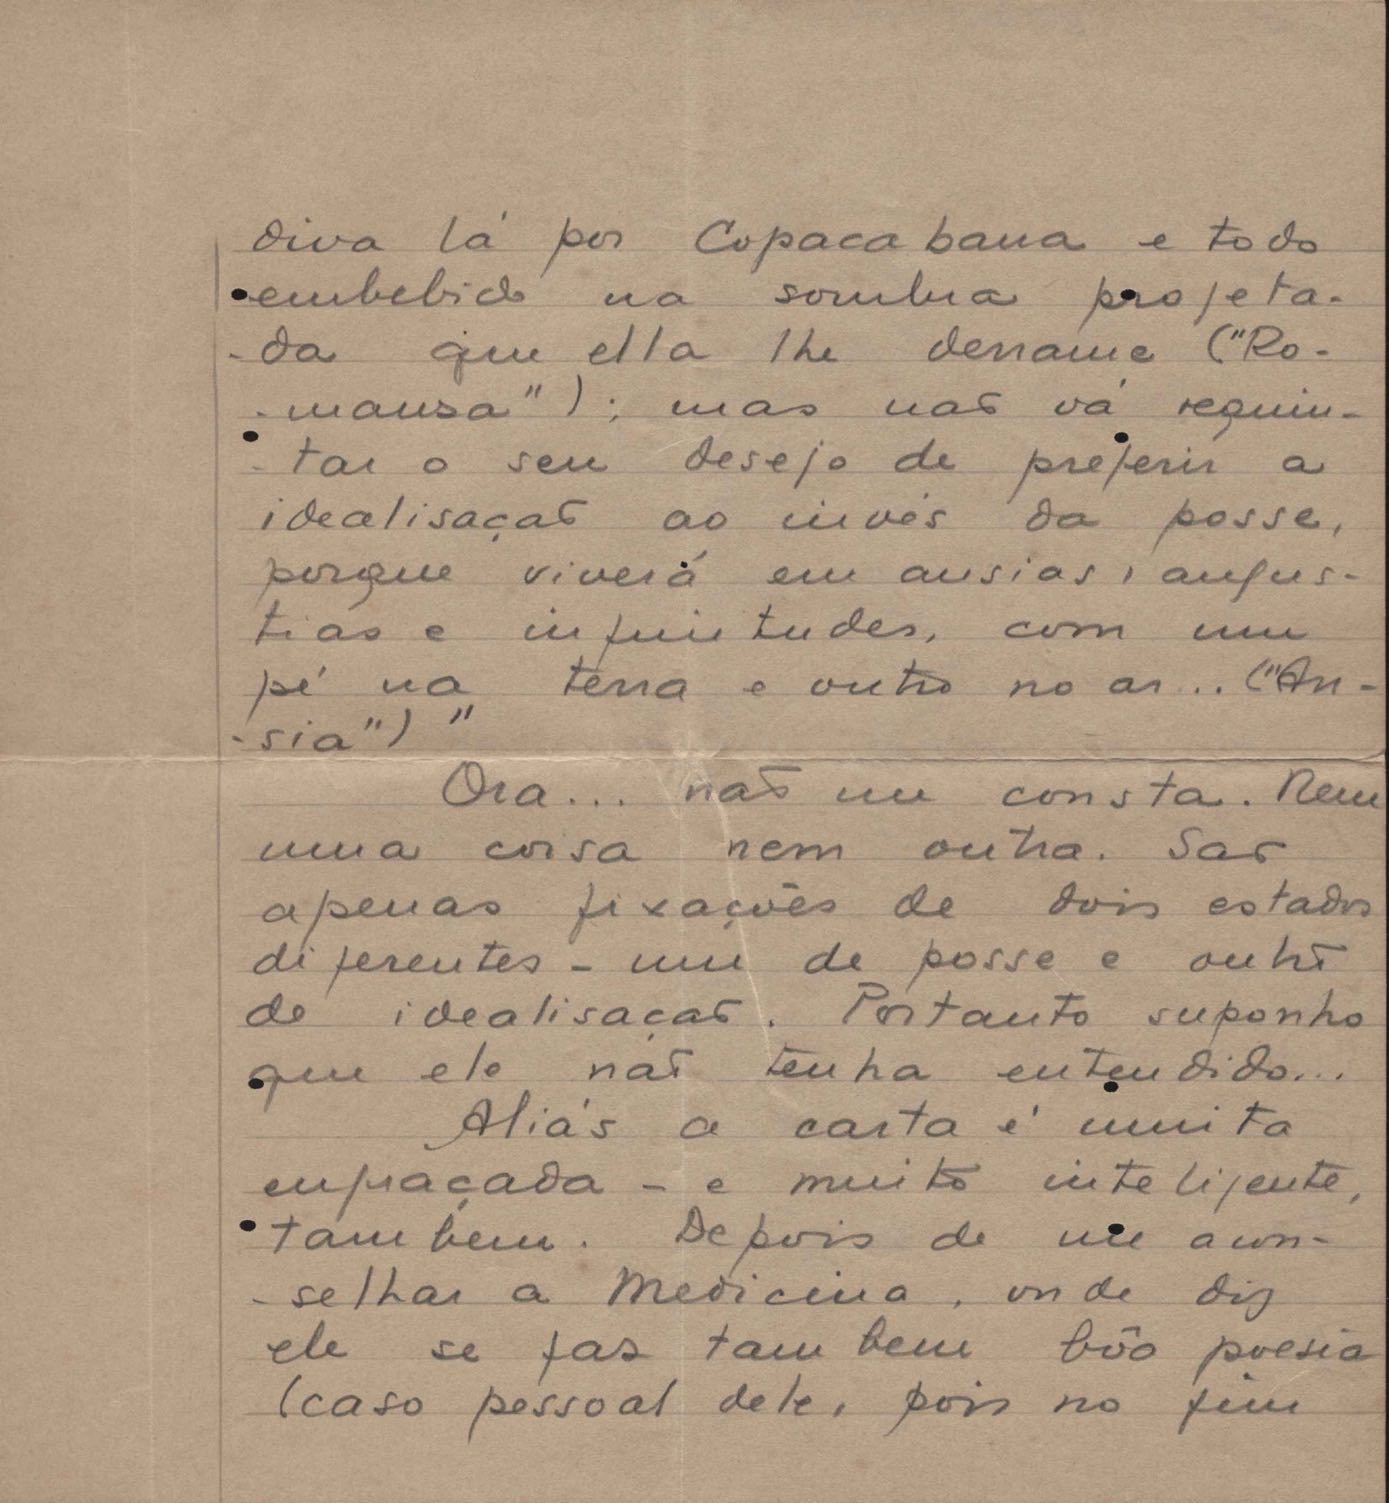 diva lá por Copacabana e todo
embebido na sombra projeta-
-da que ella lhe derrame ("Ro-
-mansa") ; mas não vá requin-
-tar o seu desejo de preferir a
idealisação ao invés da posse,
porque viverá em ansias, angus-
tias e infinitudes, com um
pé na terra e outro no ar... ("An-
-sia") "
Ora... não me consta. Nem
uma coisa nem outra. São
apenas fixações de dois estados
diferentes - um de posse e outro
de idealisação. Portanto suponho
que ele não tenha entendido...
Aliás a carta é muito
engraçada - e muito inteligente,
tambem. Depois de me acon-
-selhar a Medicina, onde diz
ele se faz tambem bôa poesia
(caso pessoal dele, pois no fim